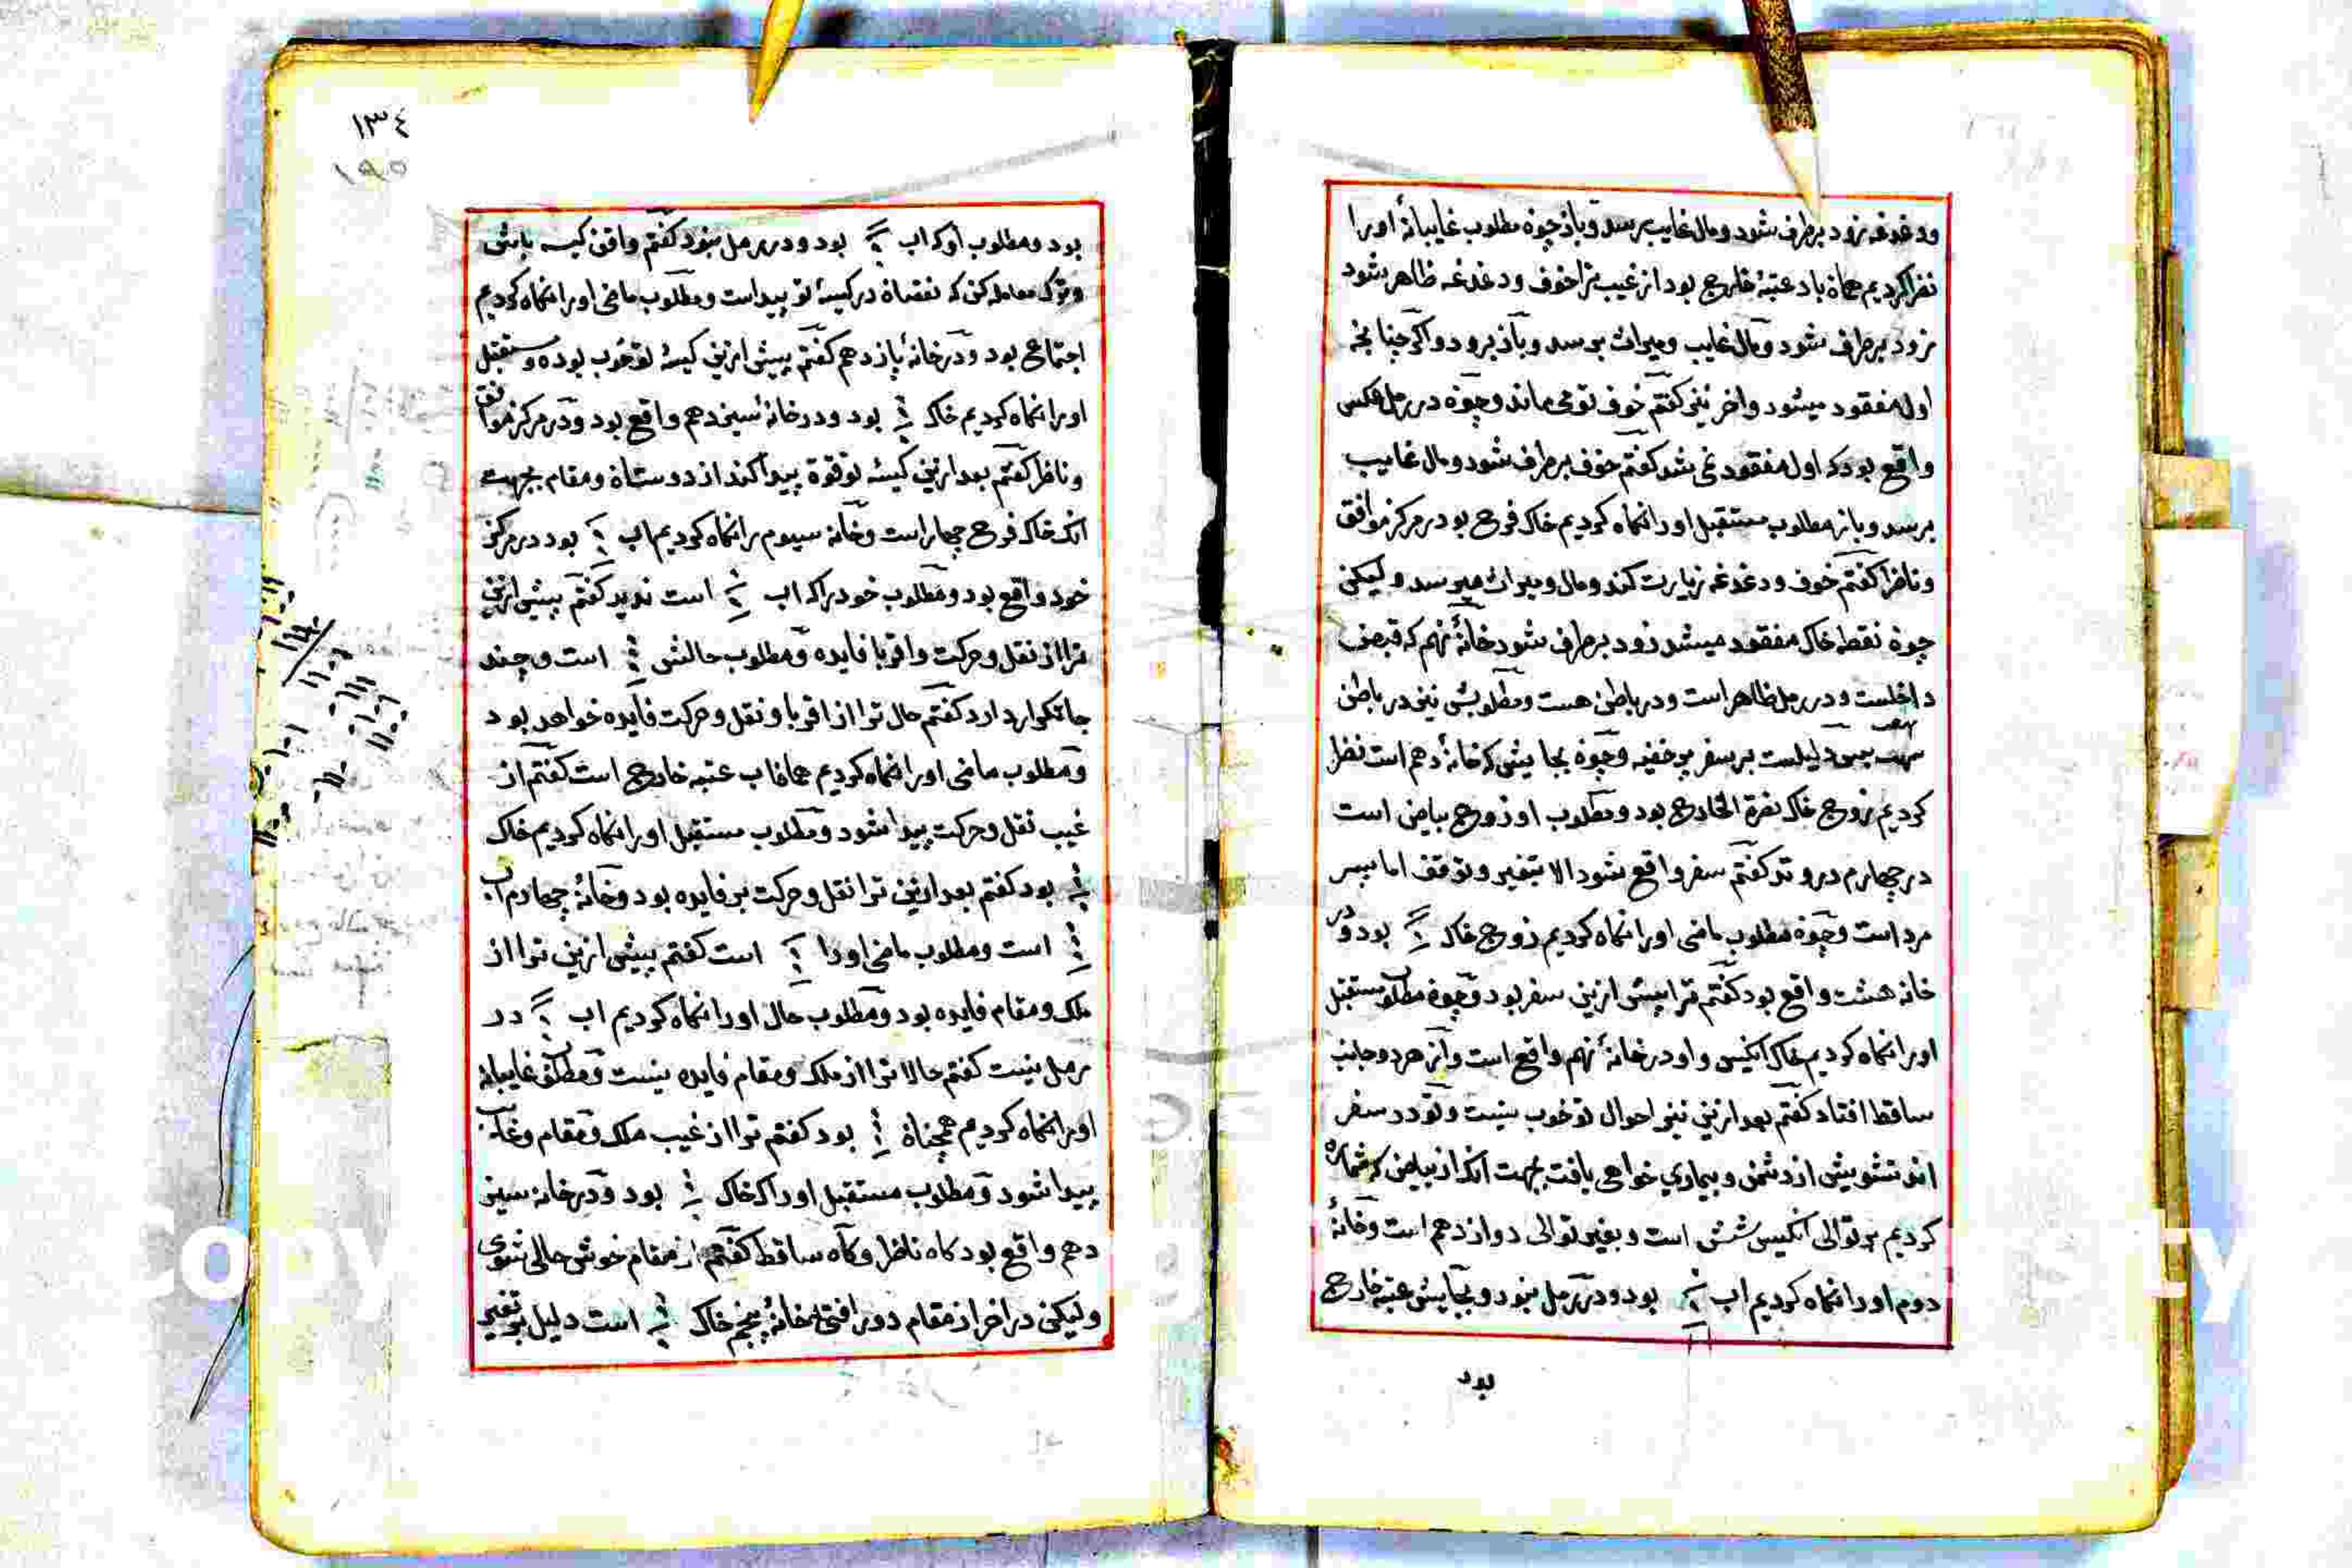 ودغدغه زود برطرف شود ومال غایب برسد وباز چون مطلوب غایبانهٔ اورا
نظر کردیم همان باد عتبهٔ خارج بود از غیب ترا خوف ودغدغه ظاهر شود
زود برطرف شود ومال غایب ومیراث برسد وباز برود واکر چنانچه
اول مفقود میشود واخر نی کفتم خوف تو می ماند وچون در رمل عکس
واقع بود که اول مفقود می شد کفتم خوف برطرف شود ومال غایب
برسد وباز مطلوب مستقبل اورا نکاه کردیم خاک فرح بود در مرکز موافق
وناظر کفتم خوف ودغدغه زیارت کند ومال ومیراث میرسد ولیکن
چون نقطه خاک مفقود میشد زود برطرف شود خانهٔ نهم که قبض
داخلست ودر رمل ظاهر است ودر باطن هست ومطلوبش نیز در باطن
هست پس دلیلست بر سفر بر خفیه وچون بجایش که خانهٔ دهم است نظر
کردیم زوج خاک نصرة الخارج بود ومطلوب او زوج بیاض است
در چهارم در وتد کفتم سفر واقع نشود الا بتغیر وتوقف اما میسر
مرد است وچون مطلوب ماضی اورا نکاه کردیم زوج خاک بود ودر
خانه هشت واقع بود کفتم ترا پیش ازین سفر بود وچون مطلوب مستقبل
اورا نکاه کردیم خاک انکیس واو در خانهٔ نهم واقع است واز هر دو جانب
ساقط افتاد کفتم بعد ازین نیز احوال تو خوب نیست وتو در سفر
اند تشویش از دشمن وبیماری خواهی یافت بجهت انکه از بیاض که شماره
کردیم بر توالی انکیس شش است وبغیر توالی دوازدهم است وخانهٔ
دوم اورا نکاه کردیم اب بود ودر رمل نبود وبجایش عتبه خارج
بود
١٣٤
١٩٥
بود ومطلوب او که اب بود ودر رمل نبود کفتم واقف کیسه باش
وترک معامله کن که نقصان در کیسهٔ تو پیداست ومطلوب ماضی اورا نکاه کردیم
اجتماع بود ودر خانهٔ یازدهم کفتم پیش ازین کیسهٔ تو خوب بوده ومستقبل
اورا نکاه کردیم خاک بود ودر خانهٔ سیزدهم واقع بود ودر مرکز موافق
وناظر کفتم بعد ازین کیسهٔ تو قوة پیدا کند از دوستان ومقام بجهت
انکه خاک فرح چهار است وخانه سیوم را نکاه کردیم اب بود در مرکز
خود واقع بود ومطلوب خود را که اب است ندید کفتم پیش ازین
ترا از نقل وحرکت واقربا فایده ومطلوب حالش است وچند
جا تکرار دارد کفتم حال ترا از اقربا ونقل وحرکت فایده خواهد بود
ومطلوب ماضی اورا نکاه کردیم همان اب عتبه خارج است کفتم از
غیب نقل وحرکت پیدا شود ومطلوب مستقبل اورا نکاه کردیم خاک
بود کفتم بعد ازین ترا نقل وحرکت بر فایده بود وخانهٔ چهارم اب
است ومطلوب ماضی اورا است کفتم پیش ازین ترا از
ملک ومقام فایده بود ومطلوب حال اورا نکاه کردیم اب در
رمل نیست کفتم حالا ترا از ملک ومقام فایده نیست ومطلوب غایبانه
اورا نکاه کردیم همچنان بود کفتم ترا از غیب ملک ومقام وغایب
پیدا شود ومطلوب مستقبل اورا که خاک بود ودر خانه سیز
دهم واقع بود کاه ناظر وکاه ساقط کفتم از مقام خوش حالی شوی
ولیکن در اخر از مقام دور افتی خانهٔ پنجم خاک است دلیل بر تغییر